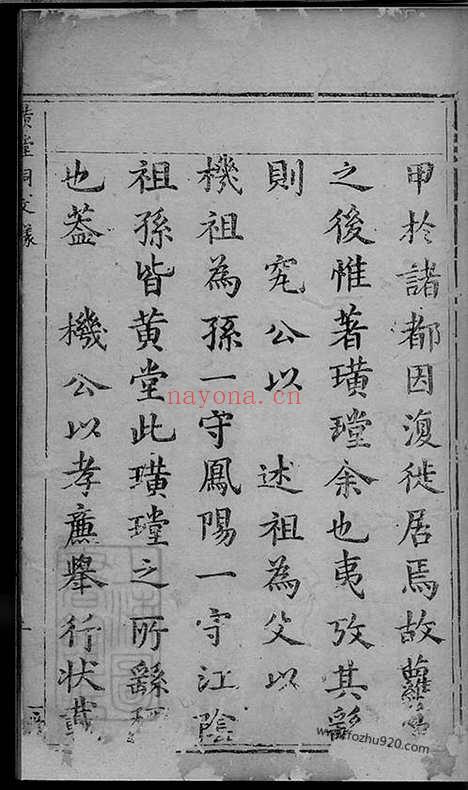 甲於諸都因復徙居焉故蘿
之後惟著璜瑝余也夷攷其繇
則 寃公以 述祖為父以
機祖為孫一守鳳陽一守江陰
祖孫皆黄堂此璜瑝之所繇
也葢 機公以孝廉舉行狀載
璜瑝
nayona.cn
www.fozhu920.com